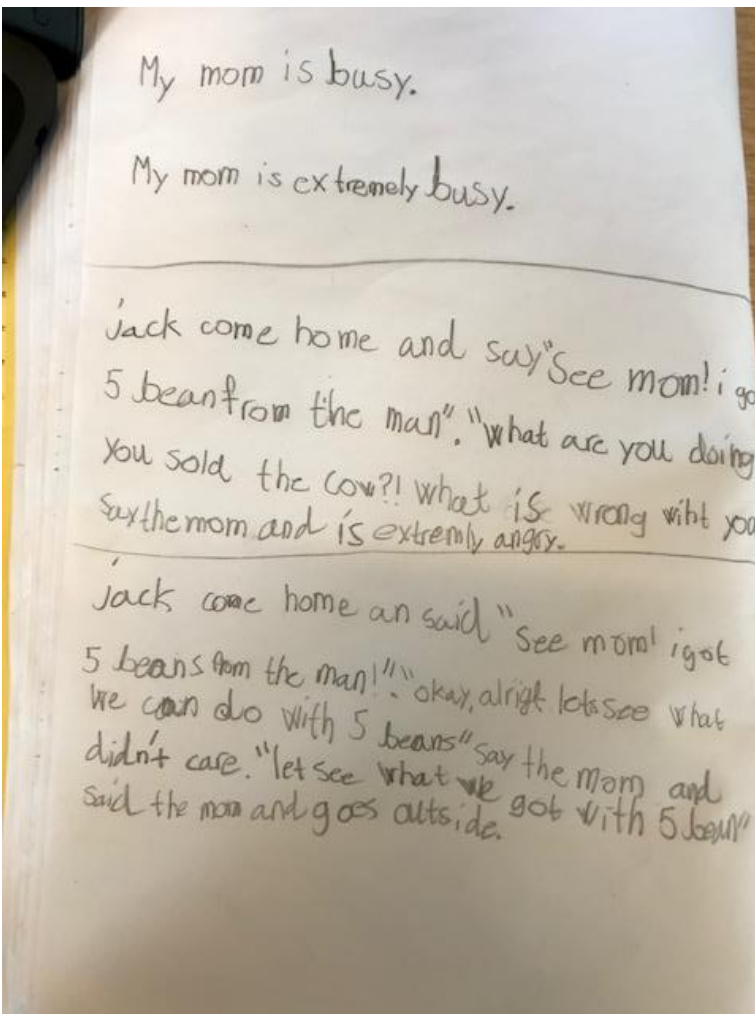 My mom is busy.
My mom is extremely busy.
jack come home and say "See mom! i go
5 bean from the man". "what are you doing
you sold the cow?! what is wrong wiht you
say the mom and is extremly angry.
jack come home an said "see mom! i got
5 beans from the man!". "okay, alrigt lets see what
we can do with 5 beans" say the mom and
didn't care. "let see what we got with 5 bean"
said the mom and goes outside.